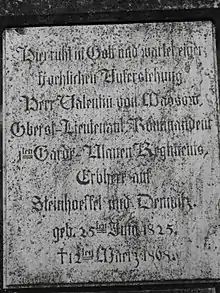 Hier ruht in Gott und wartet einer
froehlichen Auferstehung
Herr Valentin von Massow
Oberst-Lieutenant Kommandeur
1ten Garde-Ulanen Regiments,
Erbherr auf
Steinhoefel und Demnitz.
geb. 25ten Juni 1825.
† 1ten Maerz